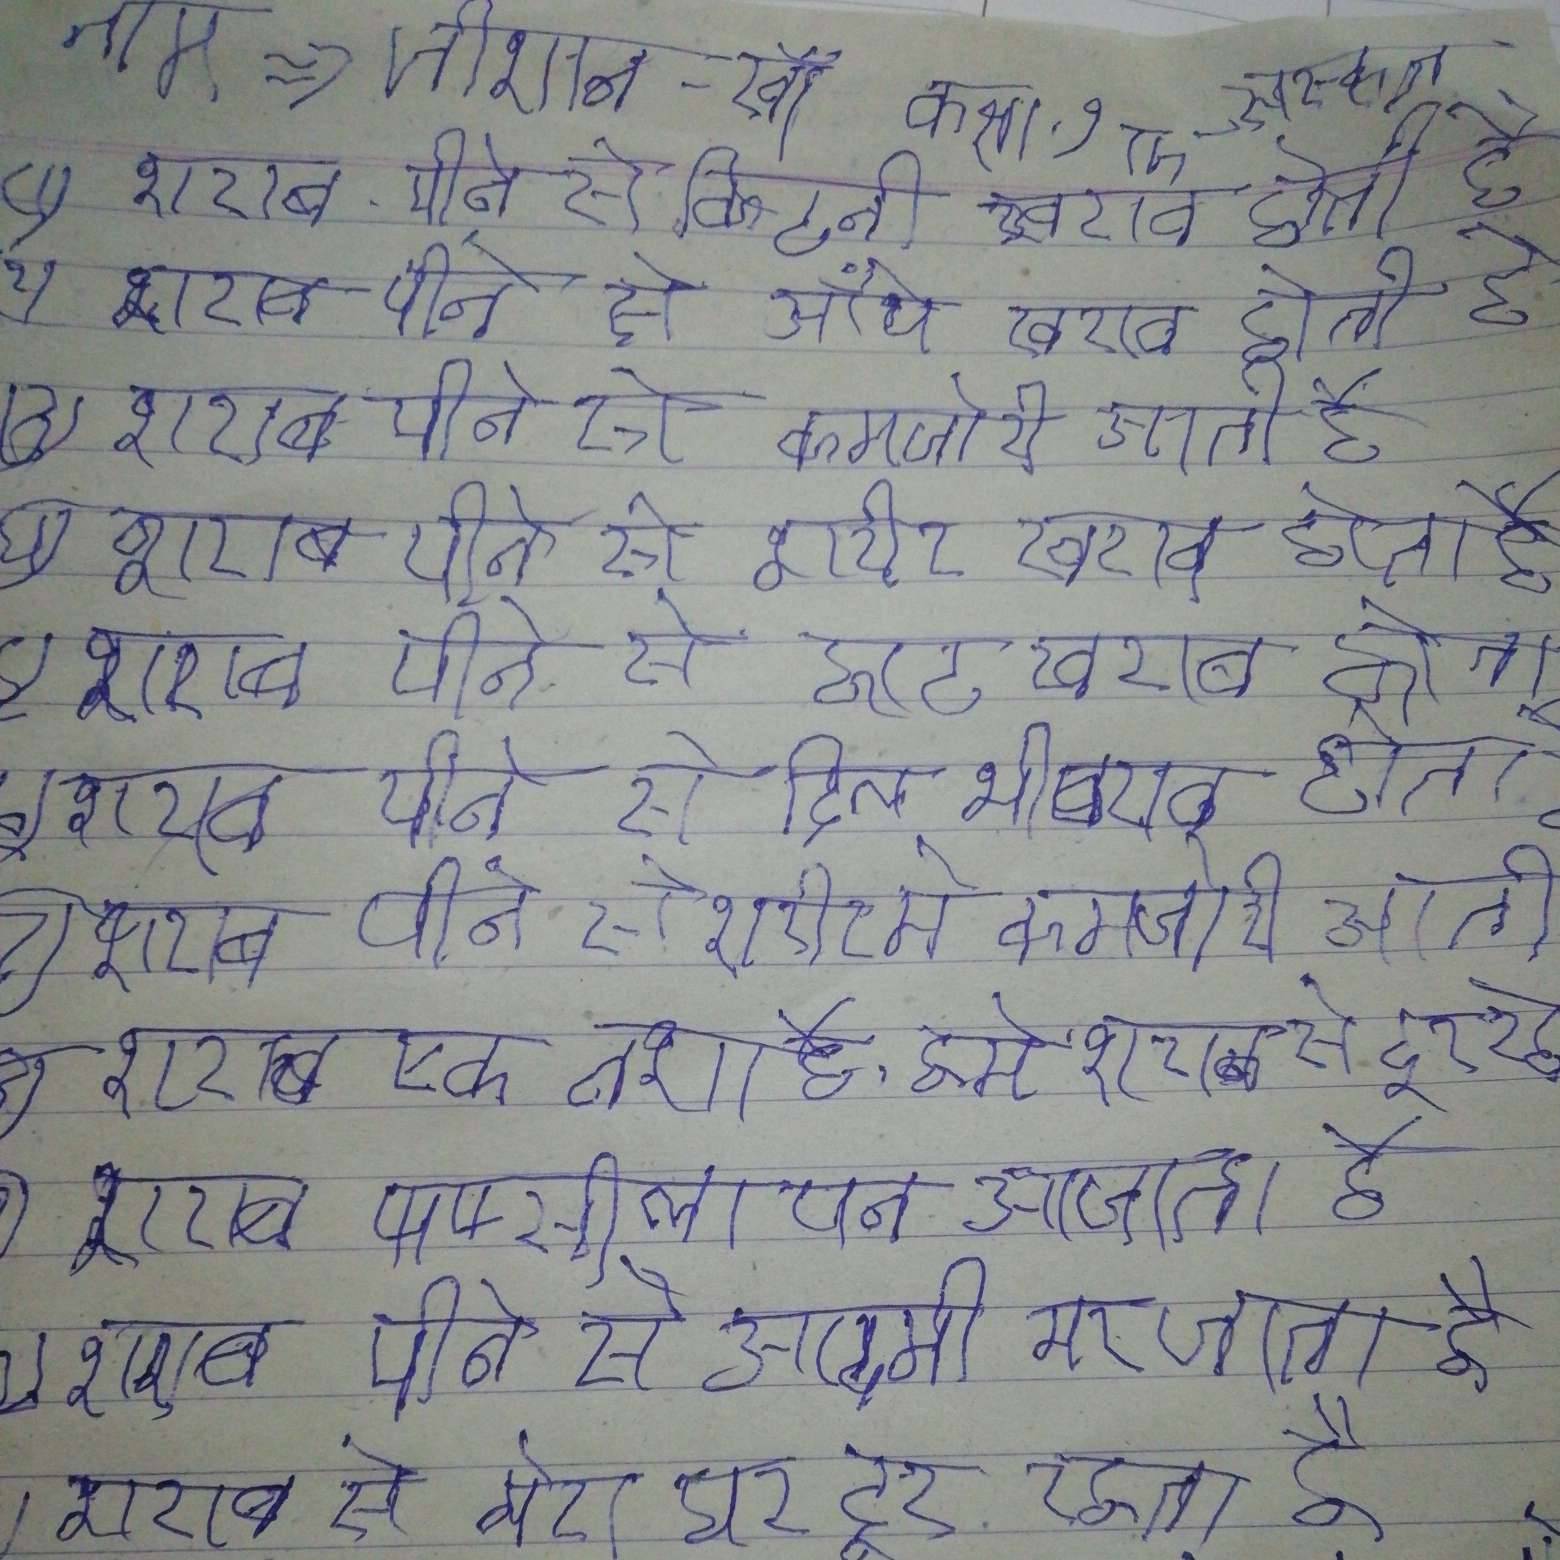 नाम ⇒ जीशान - खाँ कक्षा. 9
शराब पीने से किटनी खराब होती है
शराब पीने से आँखे खराब होती है
शराब पीने से कमजोरी आती है
शराब पीने से शरीर खराब होता है
शराब पीने से हाट खराब होता
शराब पीने से दिल भी खराब होता
शराब पीने से शरीर मे कमजोरी आती
शराब एक नशा है. हमे शराब से दूर रहे
शराब पन आजाता है
शराब पीने से आदमी मर जाता है
शराब से मेरा घर दूर रहता है